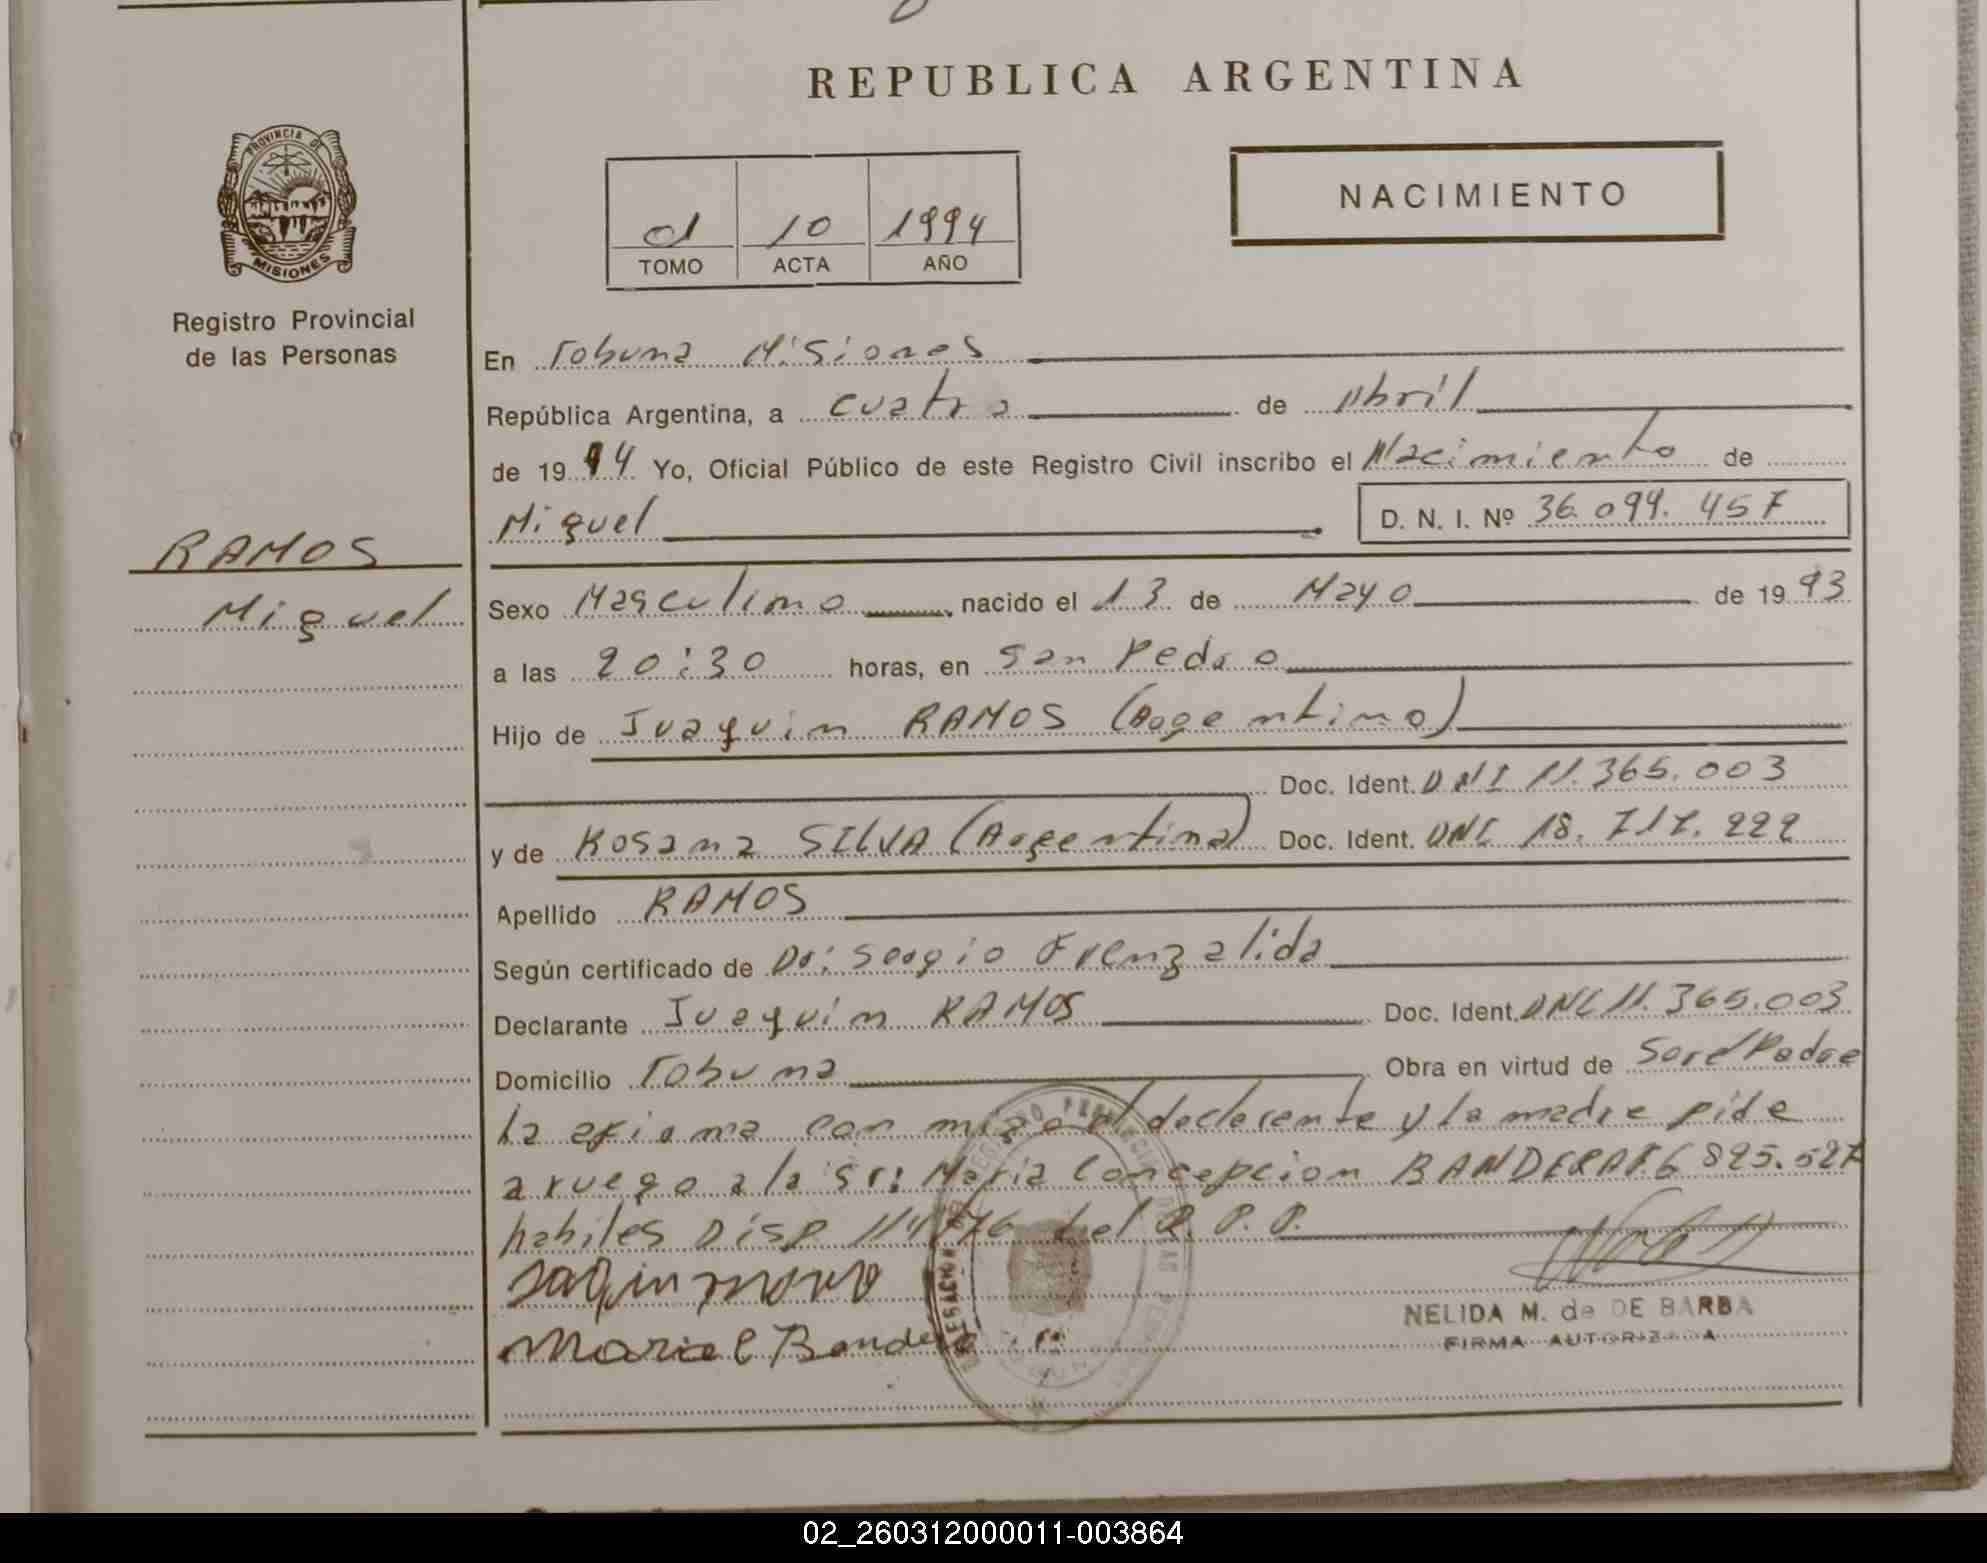 REPUBLICA ARGENTINA
PROVINCIA DE
MISIONES
Registro Provincial
de las Personas
RAMOS
Miguel
10 1994
TOMO ACTA AÑO
NACIMIENTO
En Tobuna Misiones
República Argentina, a cuatro de Abril
de 1994 Yo, Oficial Público de este Registro Civil inscribo el Nacimiento de
Miguel D. N. I. Nº 36.094.457
Sexo Masculino, nacido el 13 de Mayo de 1993
a las 20:30 horas, en San Pedro
Hijo de Juaquin RAMOS (Argentino)
Doc. Ident. DNI 11.365.003
y de Rosana SILVA (Argentina) Doc. Ident. DNI 18.717.222
Apellido RAMOS
Según certificado de Dr: Sergio Fuenzalida
Declarante Juaquin RAMOS Doc. Ident. DNI 11.365.003
Domicilio Tobuna Obra en virtud de Ser el Padre
La firma con migo el declarente y la madre pide
a ruego a la sr: Maria Concepcion BANDERA 6 895.527
habiles Disp 114/76 del R.P.P.
Maria C Bandera
NELIDA M. de DE BARBA
FIRMA AUTORIZADA
02_260312000011-003864